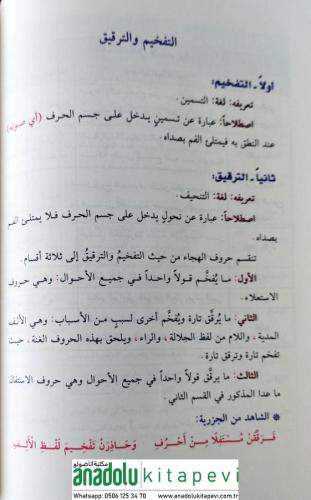 التفخيم والترقيق
أولاً ـ التفخيم:
تعريفه: لغة: التسمين.
اصطلاحاً: عبارة عن تسمينٍ يدخل على جسم الحرف (أي صوته)
عند النطق به فيمتلئ الفم بصداه.
ثانياً ـ الترقيق:
تعريفه: لغة: التنحيف.
اصطلاحاً: عبارة عن نحولٍ يدخل على جسم الحرف فلا يمتلئ الفم
بصداه.
تنقسم حروف الهجاء من حيث التفخيمُ والترقيقُ إلى ثلاثة أقسام.
الأول: ما يُفخّم قولاً واحداً في جميع الأحوال: وهي حروف
الاستعلاء.
الثاني: ما يُرقّق تارة ويُفخّم أخرى لسببٍ من الأسباب: وهي الألف
المدية، واللام من لفظ الجلالة، والراء، ويلحق بهذه الحروف الغنة، حيث
تفخم تارة وترقق تارة.
الثالث: ما يرقّق قولاً واحداً في جميع الأحوال وهي حروف الاستفال
ما عدا المذكور في القسم الثاني.
❋ الشاهد من الجزرية:
فَرَقِّقَنْ مُسْتَفِلًا مِنْ أَحْرُفِ وَحَاذِرَنْ تَفْخِيمَ لَفْظِ الْأَلِفِ
مكتبة الأناضولو
anadolu kitapevi
Whatsapp: 0506 125 34 70 www.anadolukitapevi.com